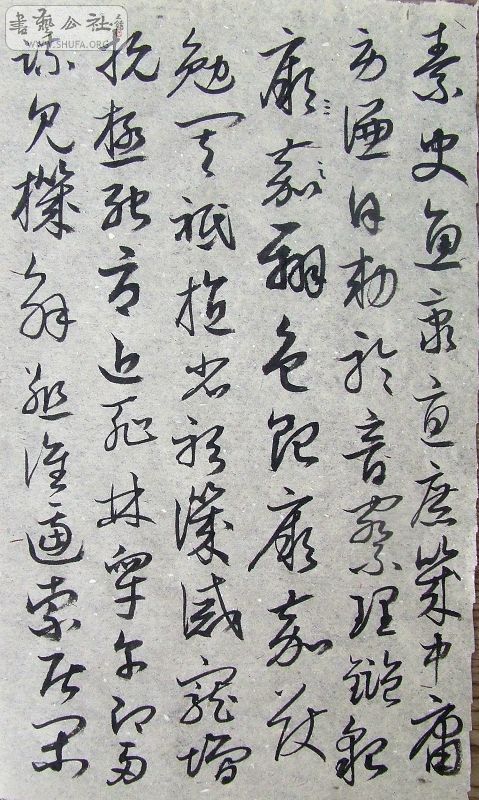 書藝公社
WWW.SHUFA.ORG
素史魚秉直庶幾中庸
勞謙謹敕聆音察理鑑貌
厥嘉辨色貽厥嘉猷
勉其祗植省躬譏誡寵增
抗極殆辱近恥林皋幸即兩
疏見機解組誰逼索居閒